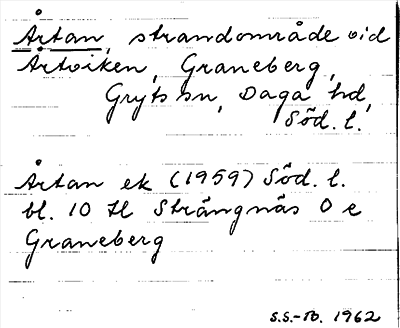 Årtan, strandområde vid
Årtviken, Graneberg,
Gryts sn, Daga hd,
Söd. l.
Årtan ek (1959) Söd. l.
bl. 10 H Strängnäs O e
Graneberg
S.S.-В. 1962